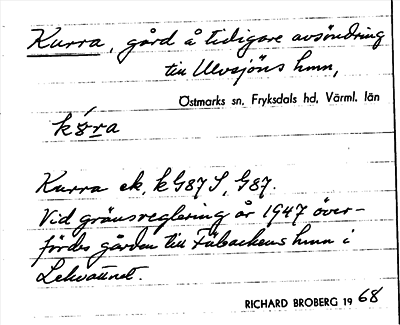 Kurra, gård å tidigare avsöndring
till Ulvsjöns hmn,
Östmarks sn, Fryksdals hd, Värml. län
Kurra ek, k G87 S, G87.
Vid gränsreglering år 1947 över-
fördes gården till Fäbackens hmn i
Lekvattnet.
RICHARD BROBERG 1968